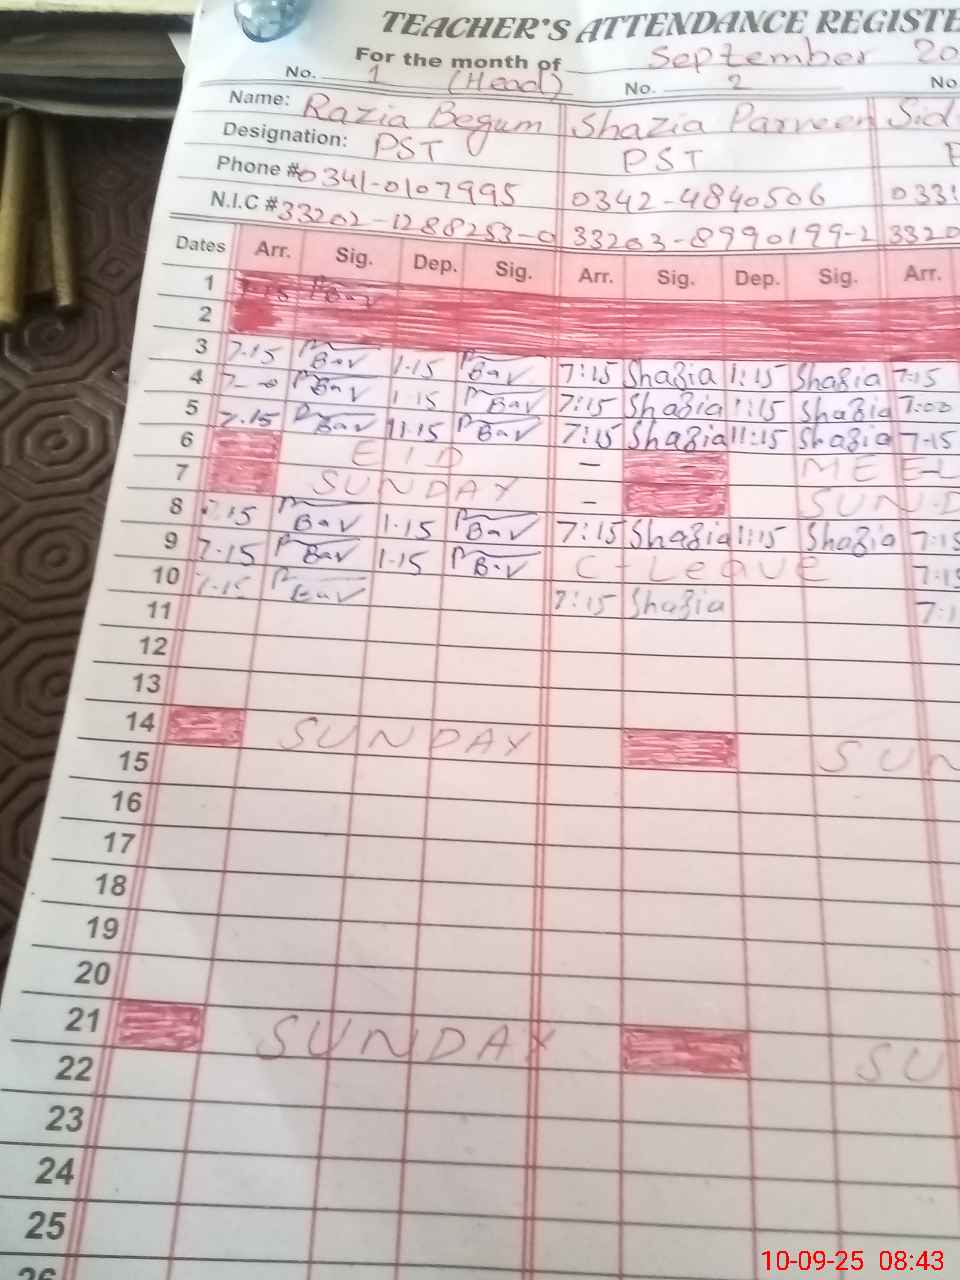 TEACHER'S ATTENDANCE REGISTE
For the month of September 20
No. 1 (Head) No. 2 No
Name: Razia Begum Shazia Parveen Sid
Designation: PST PST
Phone # 0341-0107995 0342-4840506 033
N.I.C # 33202-1288253-0 33203-8990199-2 3320
Dates Arr. Sig. Dep. Sig. Arr. Sig. Dep. Sig. Arr.
1 7.15
2
3 7.15 1.15 7:15 Shazia 1:15 Shazia 7:15
4 1.15 7:15 Shazia 1:15 Shazia 7:00
5 7.15 11.15 7:15 Shazia 11:15 Shazia 7-15
6 EID – MEEL
7 SUNDAY – SUN.D
8 7.15 1.15 7:15 Shazia 1:15 Shazia 7:15
9 7.15 1.15 C-Leave 7:15
10 7.15 7:15 Shazia 7:1
11
12
13
14 SUNDAY SUN
15
16
17
18
19
20
21 SUNDAY SU
22
23
24
25
26
10-09-25 08:43